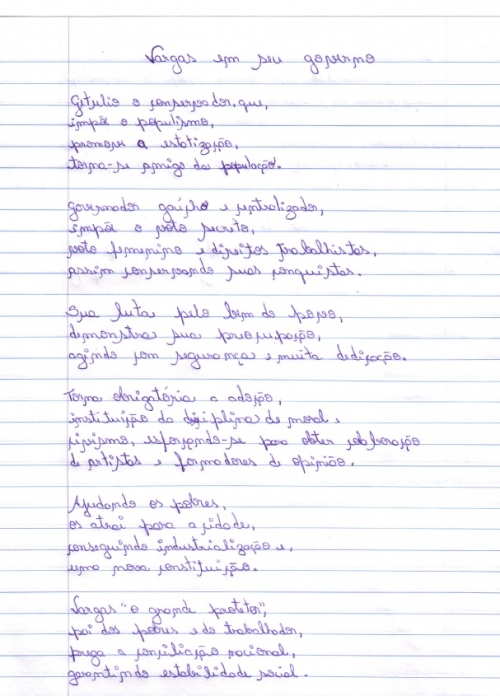 Vargas em seu governo
Getulio o conservador, que,
impõe o populismo,
promove a estatização,
torna-se amigo da população.
Governador gaúcho e centralizador,
impõe o voto secreto,
voto feminino e direitos trabalhistas,
assim conservando suas conquistas.
Sua luta pelo bem do povo,
demonstra sua preocupação,
agindo com segurança e muita dedicação.
Torna obrigatória a adoção,
instituição da disciplina de moral e
civismo, esforçando-se para obter colaboração
de artistas e formadores de opinião.
Ajudando os pobres,
os atrai para a cidade,
conseguindo industrialização e,
uma nova constituição.
Vargas "o grande protetor",
pai dos pobres e do trabalhador,
prega a conciliação nacional,
garantindo estabilidade social.